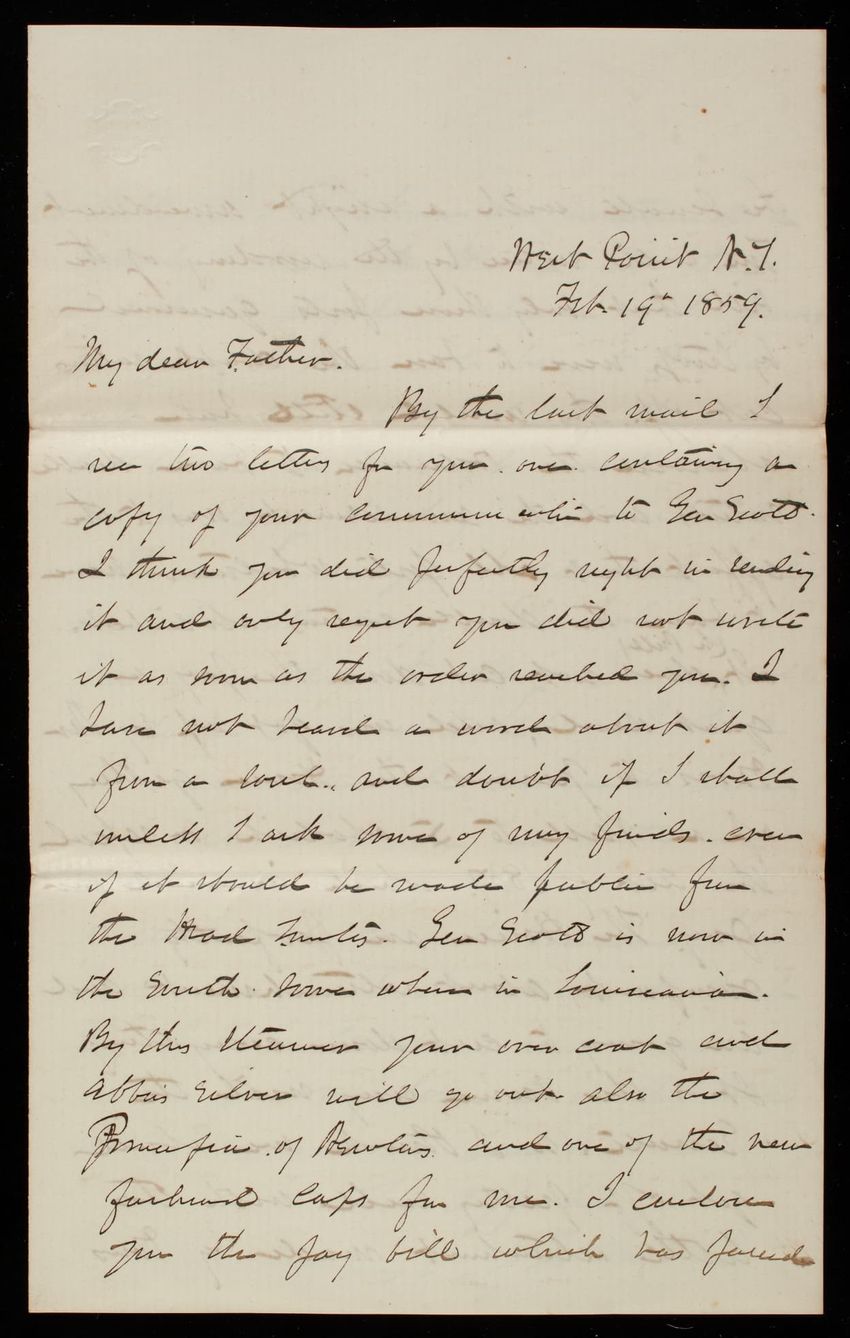 West Point N.Y.
Feb. 19th 1859.
My dear Father.
By the last mail I
rec two letters fm you. one containing a
copy of your communication to Gen Scott.
I think you did perfectly right in sending
it and only regret you did not write
it as soon as the order reached you. I
have not heard a word about it
from a soul., and doubt if I shall
unless I ask some of my friends. even
if it should be made public from
the Head Quarters. Gen Scott is now in
the South. some where in Louiseania.
By this Steamer your over coat and
Abbies silver will go out. also the
of Newtons. and one of the new
caps for me. I enclose
you the pay bill which has passed